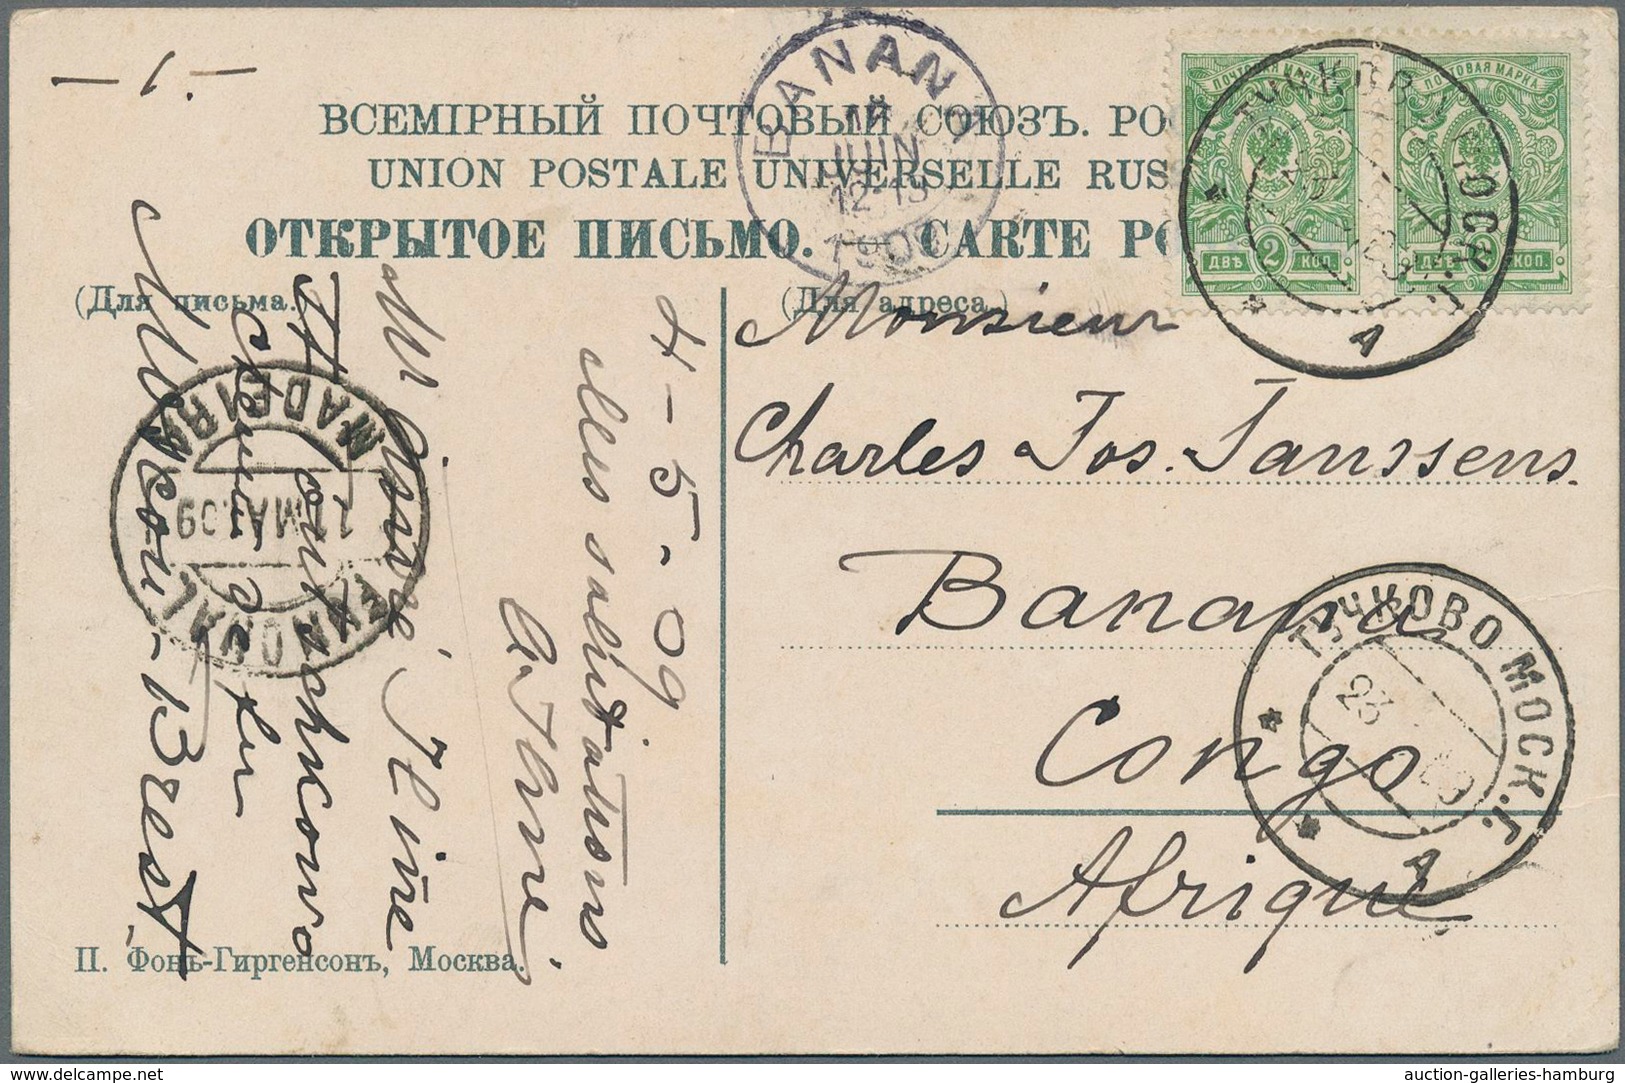 — 1. —
ВСЕМІРНЫЙ ПОЧТОВЫЙ СОЮЗЪ. РО
UNION POSTALE UNIVERSELLE RUS
ОТКРЫТОЕ ПИСЬМО. — CARTE PO
(Для письма.)
(Для адреса.)
BANANA
JUIN
12-13
190
ПОЧТОВАЯ МАРКА
2
ДВѢ КОП.
ПОЧТОВАЯ МАРКА
2
ДВѢ КОП.
ТУЧКОВО МОСК. Г.
А
Monsieur
Charles Jos. Janssens.
Banana
Congo
Afrique
ТУЧКОВО МОСК. Г.
23 09
А
4-5-09
Mes salutations
MADEIRA
MAI 09
FUNCHAL
Moscou-Brest
П. Фонъ-Гиргенсонъ, Москва.
www.delcampe.net
auction-galleries-hamburg